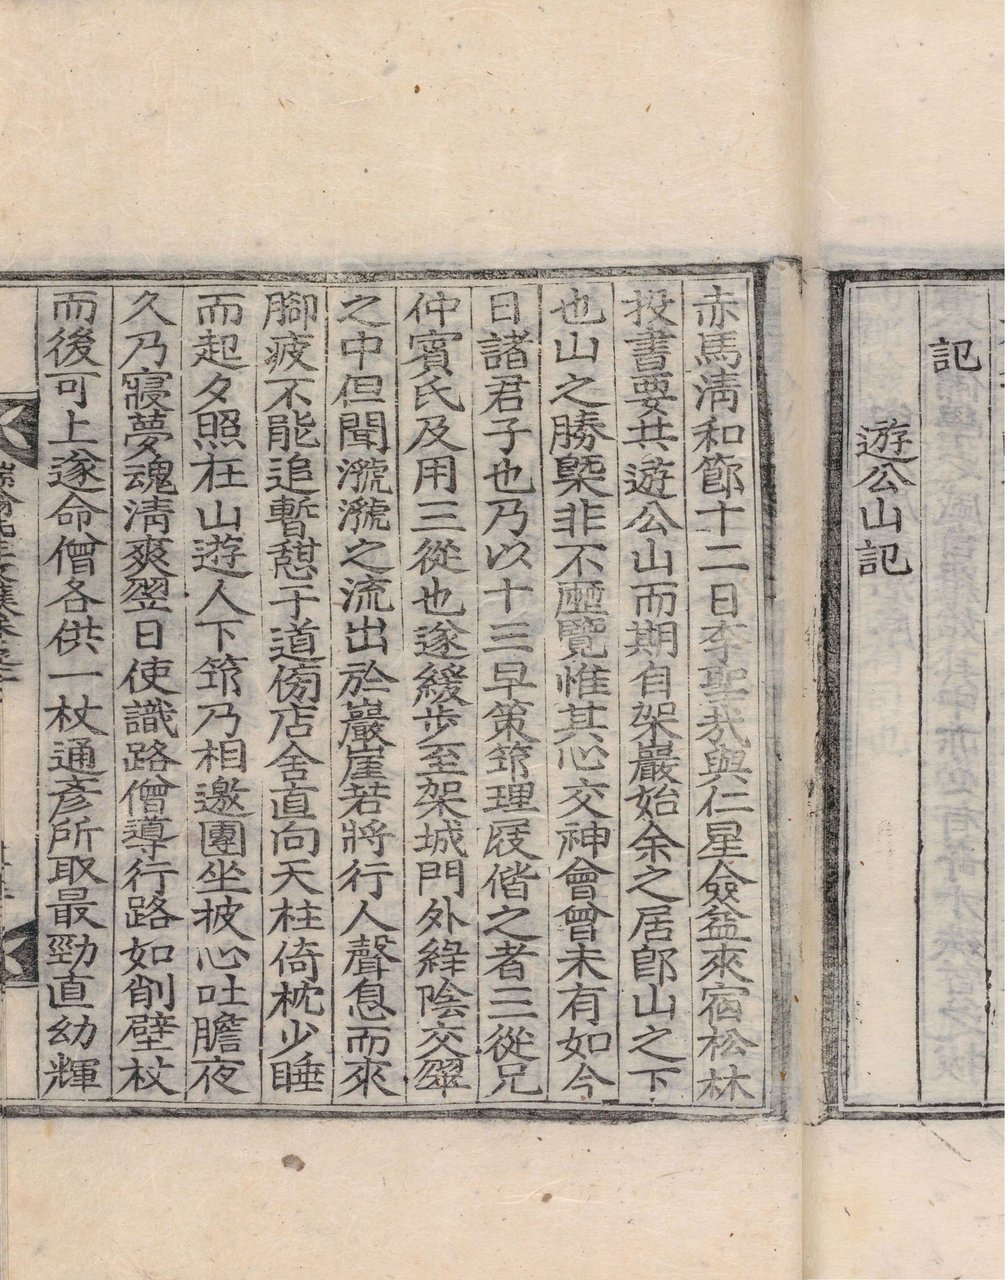 記
遊公山記
赤馬淸和節十二日李聖哉與仁星僉益來宿松林
投書要共遊公山而期自架巖始余之居卽山之下
也山之勝槩非不歷覽惟其心交神會曾未有如今
日諸君子也乃以十三早策筇理屐偕之者三從兄
仲賓氏及用三從也遂緩步至架城門外綠陰交翠
之中但聞㶁㶁之流出於巖崖若將行人聲息而來
脚疲不能追暫憇于道傍店舍直向天柱倚枕少睡
而起夕照在山遊人下筇乃相邀團坐披心吐膽夜
久乃寢夢魂淸爽翌日使識路僧導行路如削壁杖
而後可上遂命僧各供一杖通彦所取最勁直幼輝